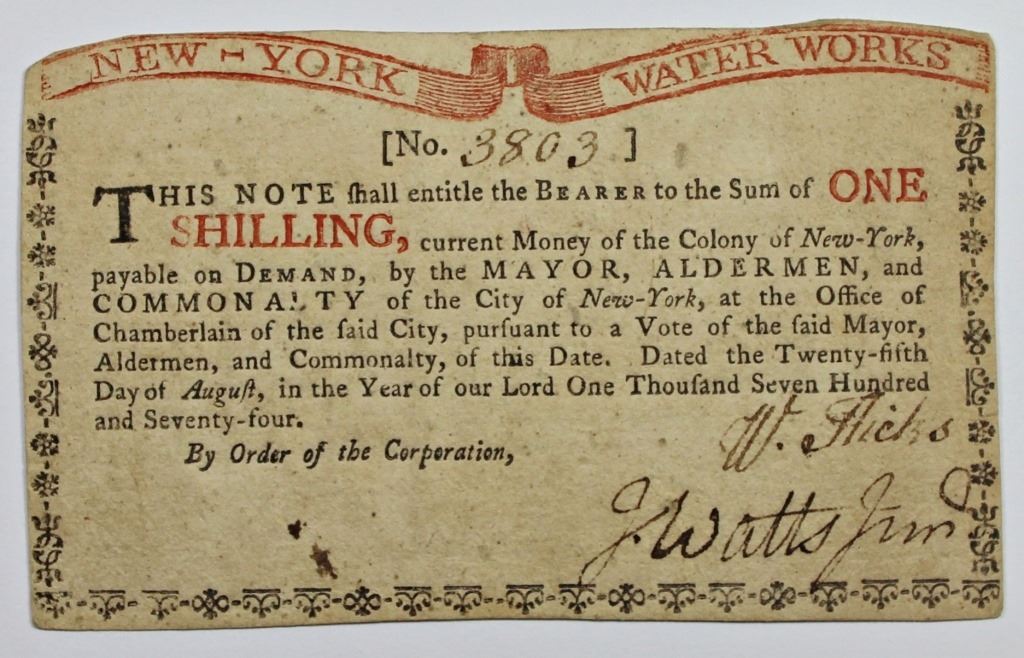 NEW-YORK WATER WORKS
[No. 3803 ]
THIS NOTE ſhall entitle the BEARER to the Sum of ONE
SHILLING, current Money of the Colony of New-York,
payable on DEMAND, by the MAYOR, ALDERMEN, and
COMMONALTY of the City of New-York, at the Office of
Chamberlain of the ſaid City, purſuant to a Vote of the ſaid Mayor,
Aldermen, and Commonalty, of this Date. Dated the Twenty-fifth
Day of Auguſt, in the Year of our Lord One Thouſand Seven Hundred
and Seventy-four.
By Order of the Corporation,
W. Hicks
J. Watts Junr